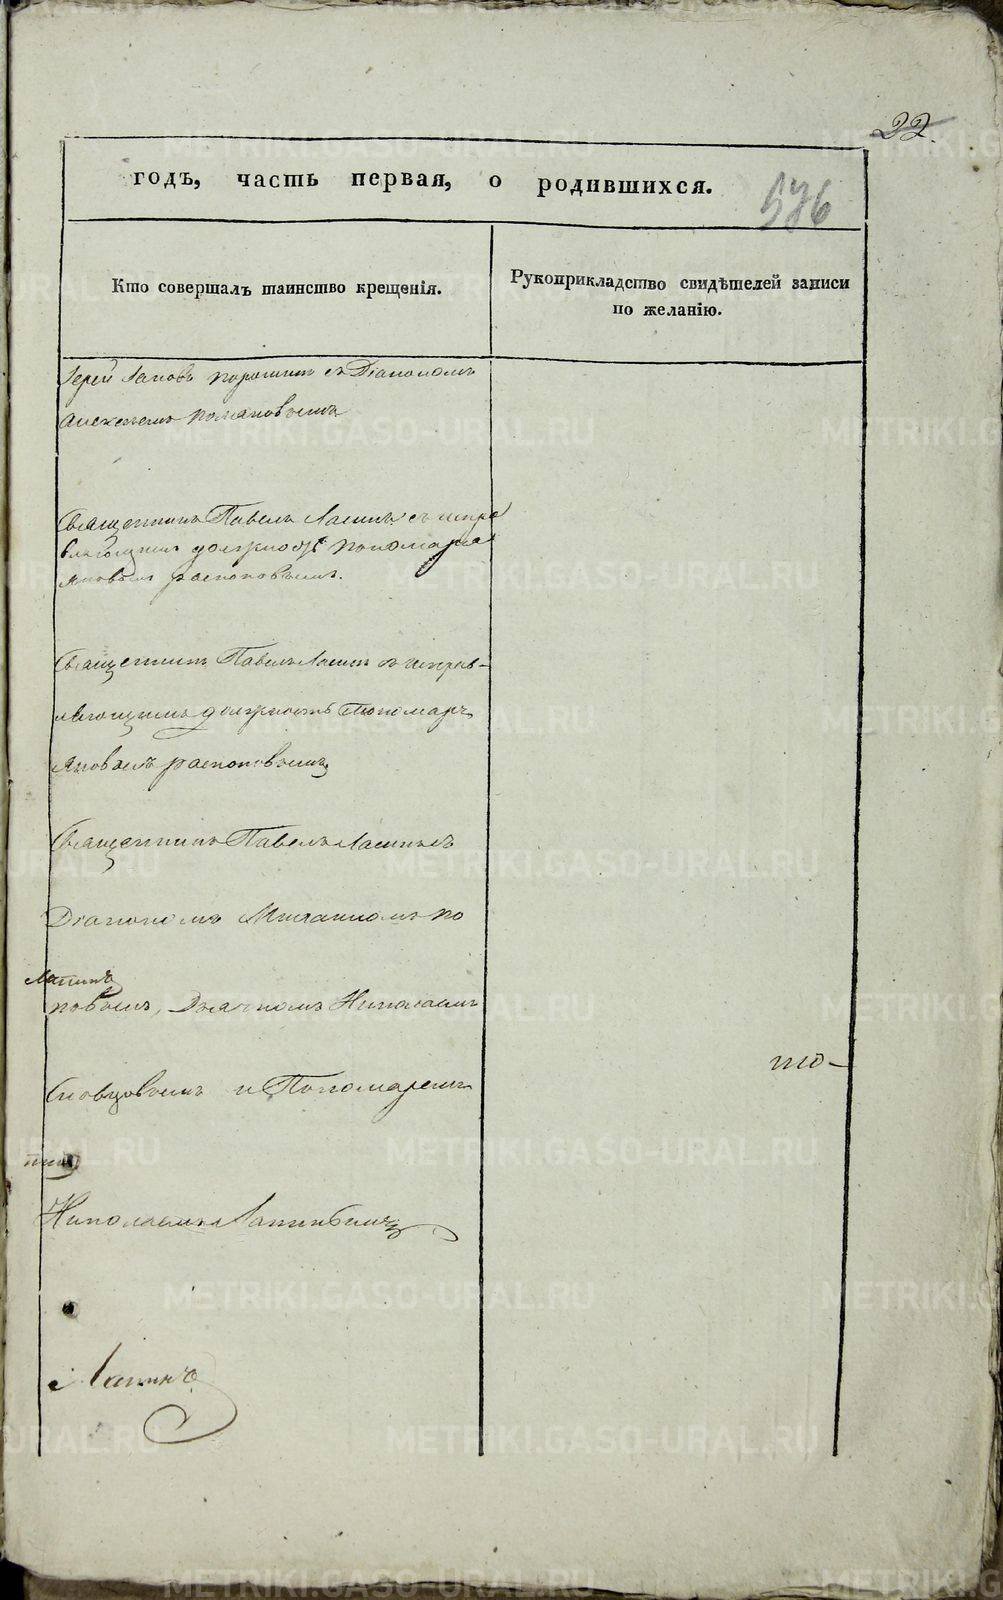 22.
годъ, часть первая, о родившихся.
576
Кто совершалъ таинство крещенія.
Рукоприкладство свидѣтелей записи
по желанію.
Іерей Іаковъ с Діакономъ
Алексеемъ Романовымъ
Священникъ Павелъ Лапинъ съ испра
вляющимъ должность Пономаря
Яковомъ распоповымъ.
Священникъ Павелъ Лапинъ съ исправ-
ляющимъ должность Пономаря
Яковомъ распоповымъ
Священникъ Павелъ Лапинъ съ
Діакономъ по
Лапинъ
повымъ, Дьячкомъ Николаемъ
Словцовымъ и Пономаремъ
Николаемъ
то-
Лапинъ
METRIKI.GASO-URAL.RU